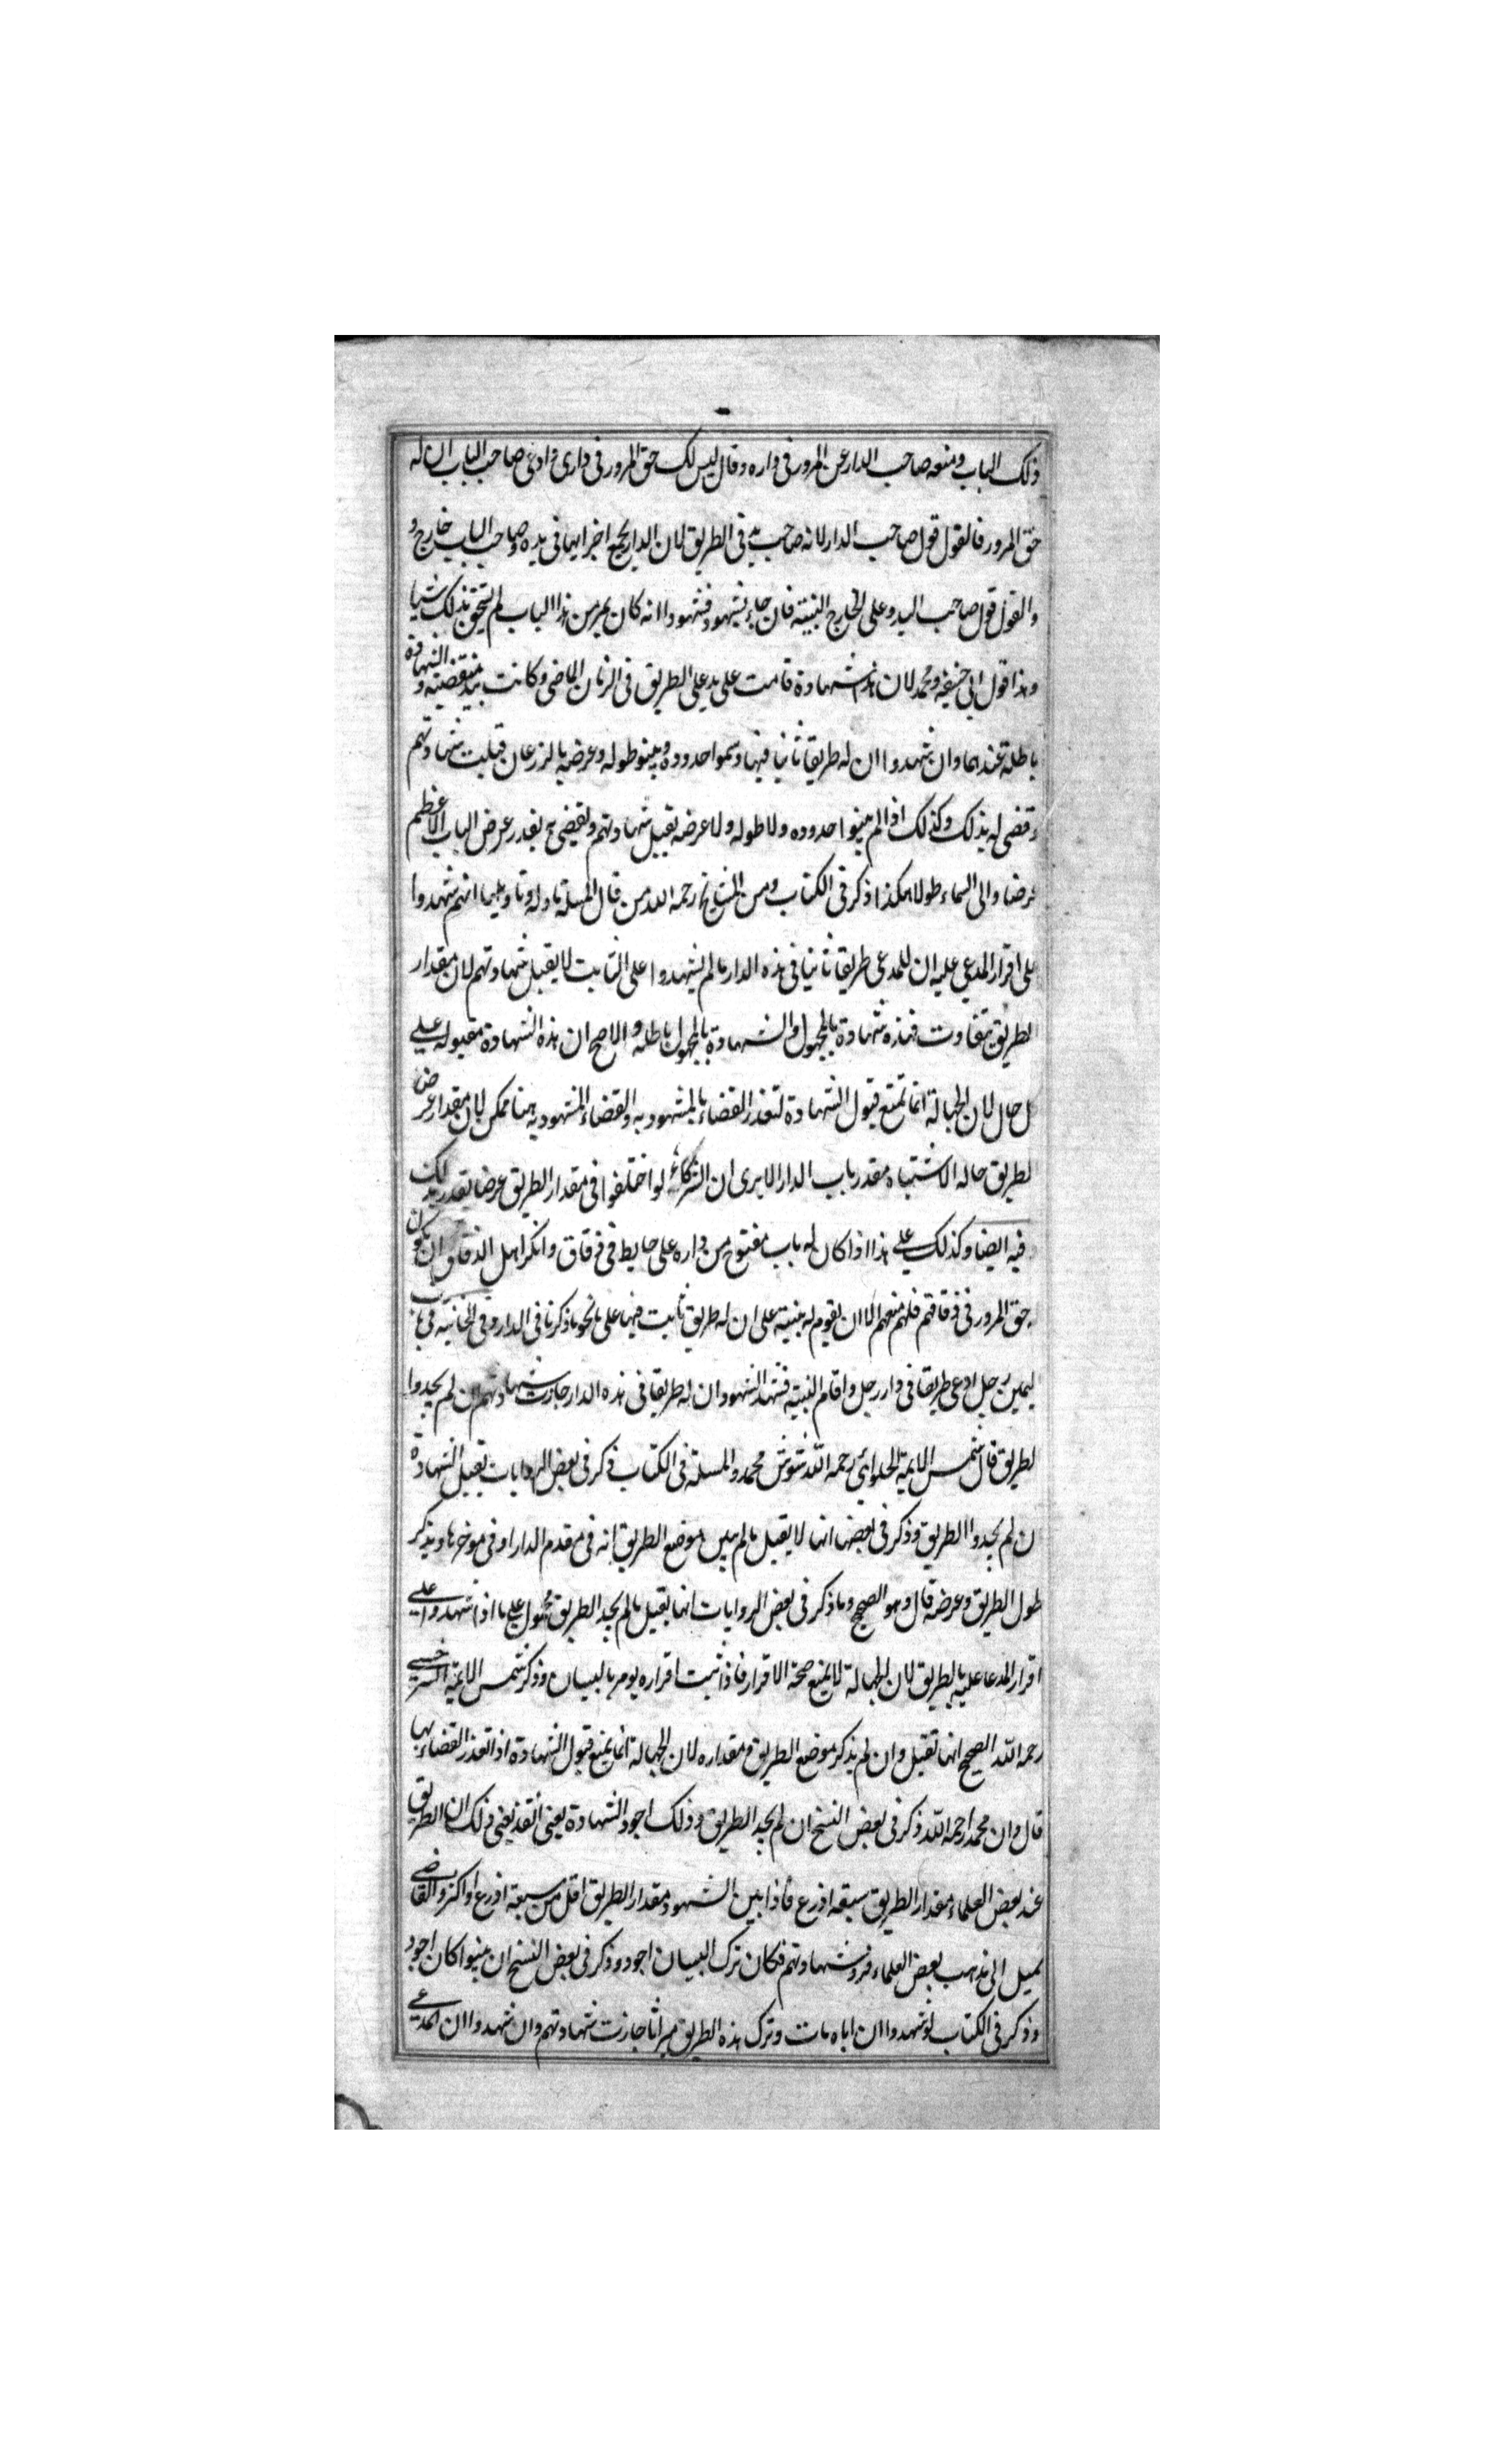 ذلك الباب ومنعه صاحب الدار عن المرور فى داره وقال ليس لك حق المرور فى دارى وادعى صاحب الباب ان له
حق المرور فالقول قول صاحب الدار لانه صاحب يد فى الطريق لان الدار بجميع اجزايها فى يده وصاحب الباب خارج و
والقول قول صاحب اليد وعلى الخارج البينة فان جاء بشهود فشهدوا انه كان يمر من هذا الباب لم يستحق بذلك شيا
وهذا قول ابى حنيفه ومحمد لان هذه شهادة قامت على يد على الطريق فى الزمان الماضى وكانت بيد منقضية والشهادة
باطلة عندهما وان شهدوا ان له طريقا ثانيا فيها وسموا حدوده وبينو طوله وعرضه بالذرعان قبلت شهادتهم
وقضى له بذلك وكذلك اذا لم يبينوا حدوده ولا طوله ولا عرضه يقبل شهادتهم ويقضى ح بقدر عرض الباب الاعظم
عرضا والى السماء طولا هكذا ذكر فى الكتاب ومن المشايخ رحمه الله من قال المسلة ماوله وتاويلها انهم شهدوا
على اقرار المدعى عليه ان للمدعى طريقا ثانيا فى هذه الدار ما لم يشهدوا على الثابت لا يقبل شهادتهم لان مقدار
لطريق يتفاوت فهذه شهادة بالمجهول والشهادة بالمجهول باطله والاصح ان هذه الشهادة مقبوله على
كل حال لان الجهالة انما تمنع قبول الشهادة لتعذر القضاء بالمشهود به والقضاء المشهود به هنا ممكن لان مقدار عرض
لطريق حاله الاشتباه مقدر باب الدار الا يرى ان الشركاء لو اختلفوا فى مقدار الطريق عرضا يقدر بذلك
فيه ايضا وكذلك على هذا اذا كان له باب مفتوح من داره على حايط فى زقاق وانكر اهل الزقاق ان يكون
له حق المرور فى زقاقهم فلهم منعهم الا ان يقوم له بينة على ان له طريق ثابت فيها على نحو ما ذكرنا فى الدار وفى الخانية فى باب
ليمين رجل ادعى طريقا فى دار رجل واقام البينة فشهد الشهود ان له طريقا فى هذه الدار جازت شهادتهم ان لم يحدوا
لطريق قال شمس الايمة الحلوائى رحمه الله شوش محمد والمسلة فى الكتاب ذكر فى بعض الروايات تقبل الشهادة
ان لم يحدوا الطريق وذكر فى بعضها انها لا يقبل ما لم يبين موضع الطريق انه فى مقدم الدار او فى موخرها ويذكر
طول الطريق وعرضه قال وهو الصحيح وما ذكر فى بعض الروايات انها يقبل ما لم يحد الطريق محمول على ما اذا شهدوا على
اقرار المدعا عليه بالطريق لان الجهالة لا يمنع صحة الاقرار فاذا ثبت اقراره يومر بالبيان وذكر شمس الايمة السرخسى
رحمه الله الصحيح انها تقبل وان لم يذكر موضع الطريق ومقداره لان الجهالة انما يمنع قبول الشهادة اذا تعذر القضاء بها
قال وان محمدا رحمه الله ذكر فى بعض النسخ ان لم يحد الطريق وذلك اجود الشهادة يعنى انفذ يعنى ذلك ان الطريق
عند بعض العلماء مقدار الطريق سبعة اذرع فاذا بين الشهود مقدار الطريق اقل من سبعة اذرع او اكثر والقاضى
يميل الى مذهب بعض العلماء فرد شهادتهم فكان ترك البيان اجود وذكر فى بعض النسخ ان بينوا كان اجود
وذكر فى الكتاب لو شهدوا ان اباه مات وترك هذه الطريق ميراثا جازت شهادتهم وان شهدوا ان المدعى